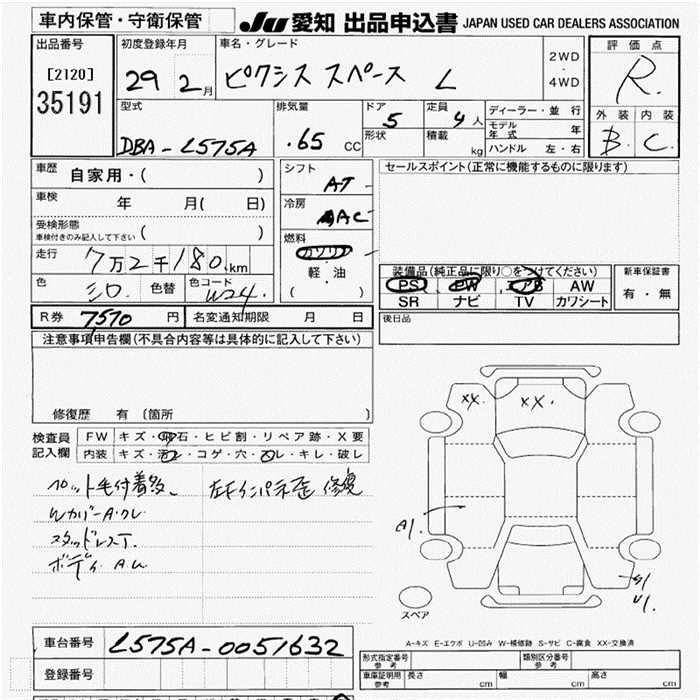 車内保管・守衛保管
JU 愛知 出品申込書 JAPAN USED CAR DEALERS ASSOCIATION
出品番号
[2120]
35191
初度登録年月
29 2月
車名・グレード
ピクシス スペース L
2WD
・
4WD
評価点
R.
外装 内装
B. C.
型式
DBA-L575A
排気量
.65 CC
ドア 5
形状
定員 4人
積載 kg
ディーラー・並行
モデル年式 年
ハンドル 左・右
車歴 自家用・( )
車検 年 月( 日)
受検形態
車検付きのみ記入して下さい ( )
走行 7万2千180.km
色 シロ. 色替 色コード W24.
シフト AT
冷房 AC
燃料 ガソリン
・
軽・油
( )
セールスポイント(正常に機能するものに限ります)
装備品(純正品に限り○をつけてください)
PS PW AB AW
SR ナビ TV カワシート
新車保証書
有・無
R券 7570 円 名変通知期限 月 日
後日品
注意事項申告欄(不具合内容等は具体的に記入して下さい)
修復歴 有 〔箇所 〕
検査員
記入欄
FW キズ・飛石・ヒビ割・リペア跡・X要
内装 キズ・汚レ・コゲ・穴・スレ・キレ・破レ
ペット毛付着多、
Wカバー A.クレ
スタッドレスT.
ボディ A.U
修復
XX. XX.
A1.
U1.
スペア
A-キズ E-エクボ U-凹み W-補修跡 S-サビ C-腐食 XX-交換済
車台番号 L575A-0051632
登録番号
形式指定番号
参考
類別区分番号
参考
車庫証明用
参考
長さ cm 幅 cm 高さ cm